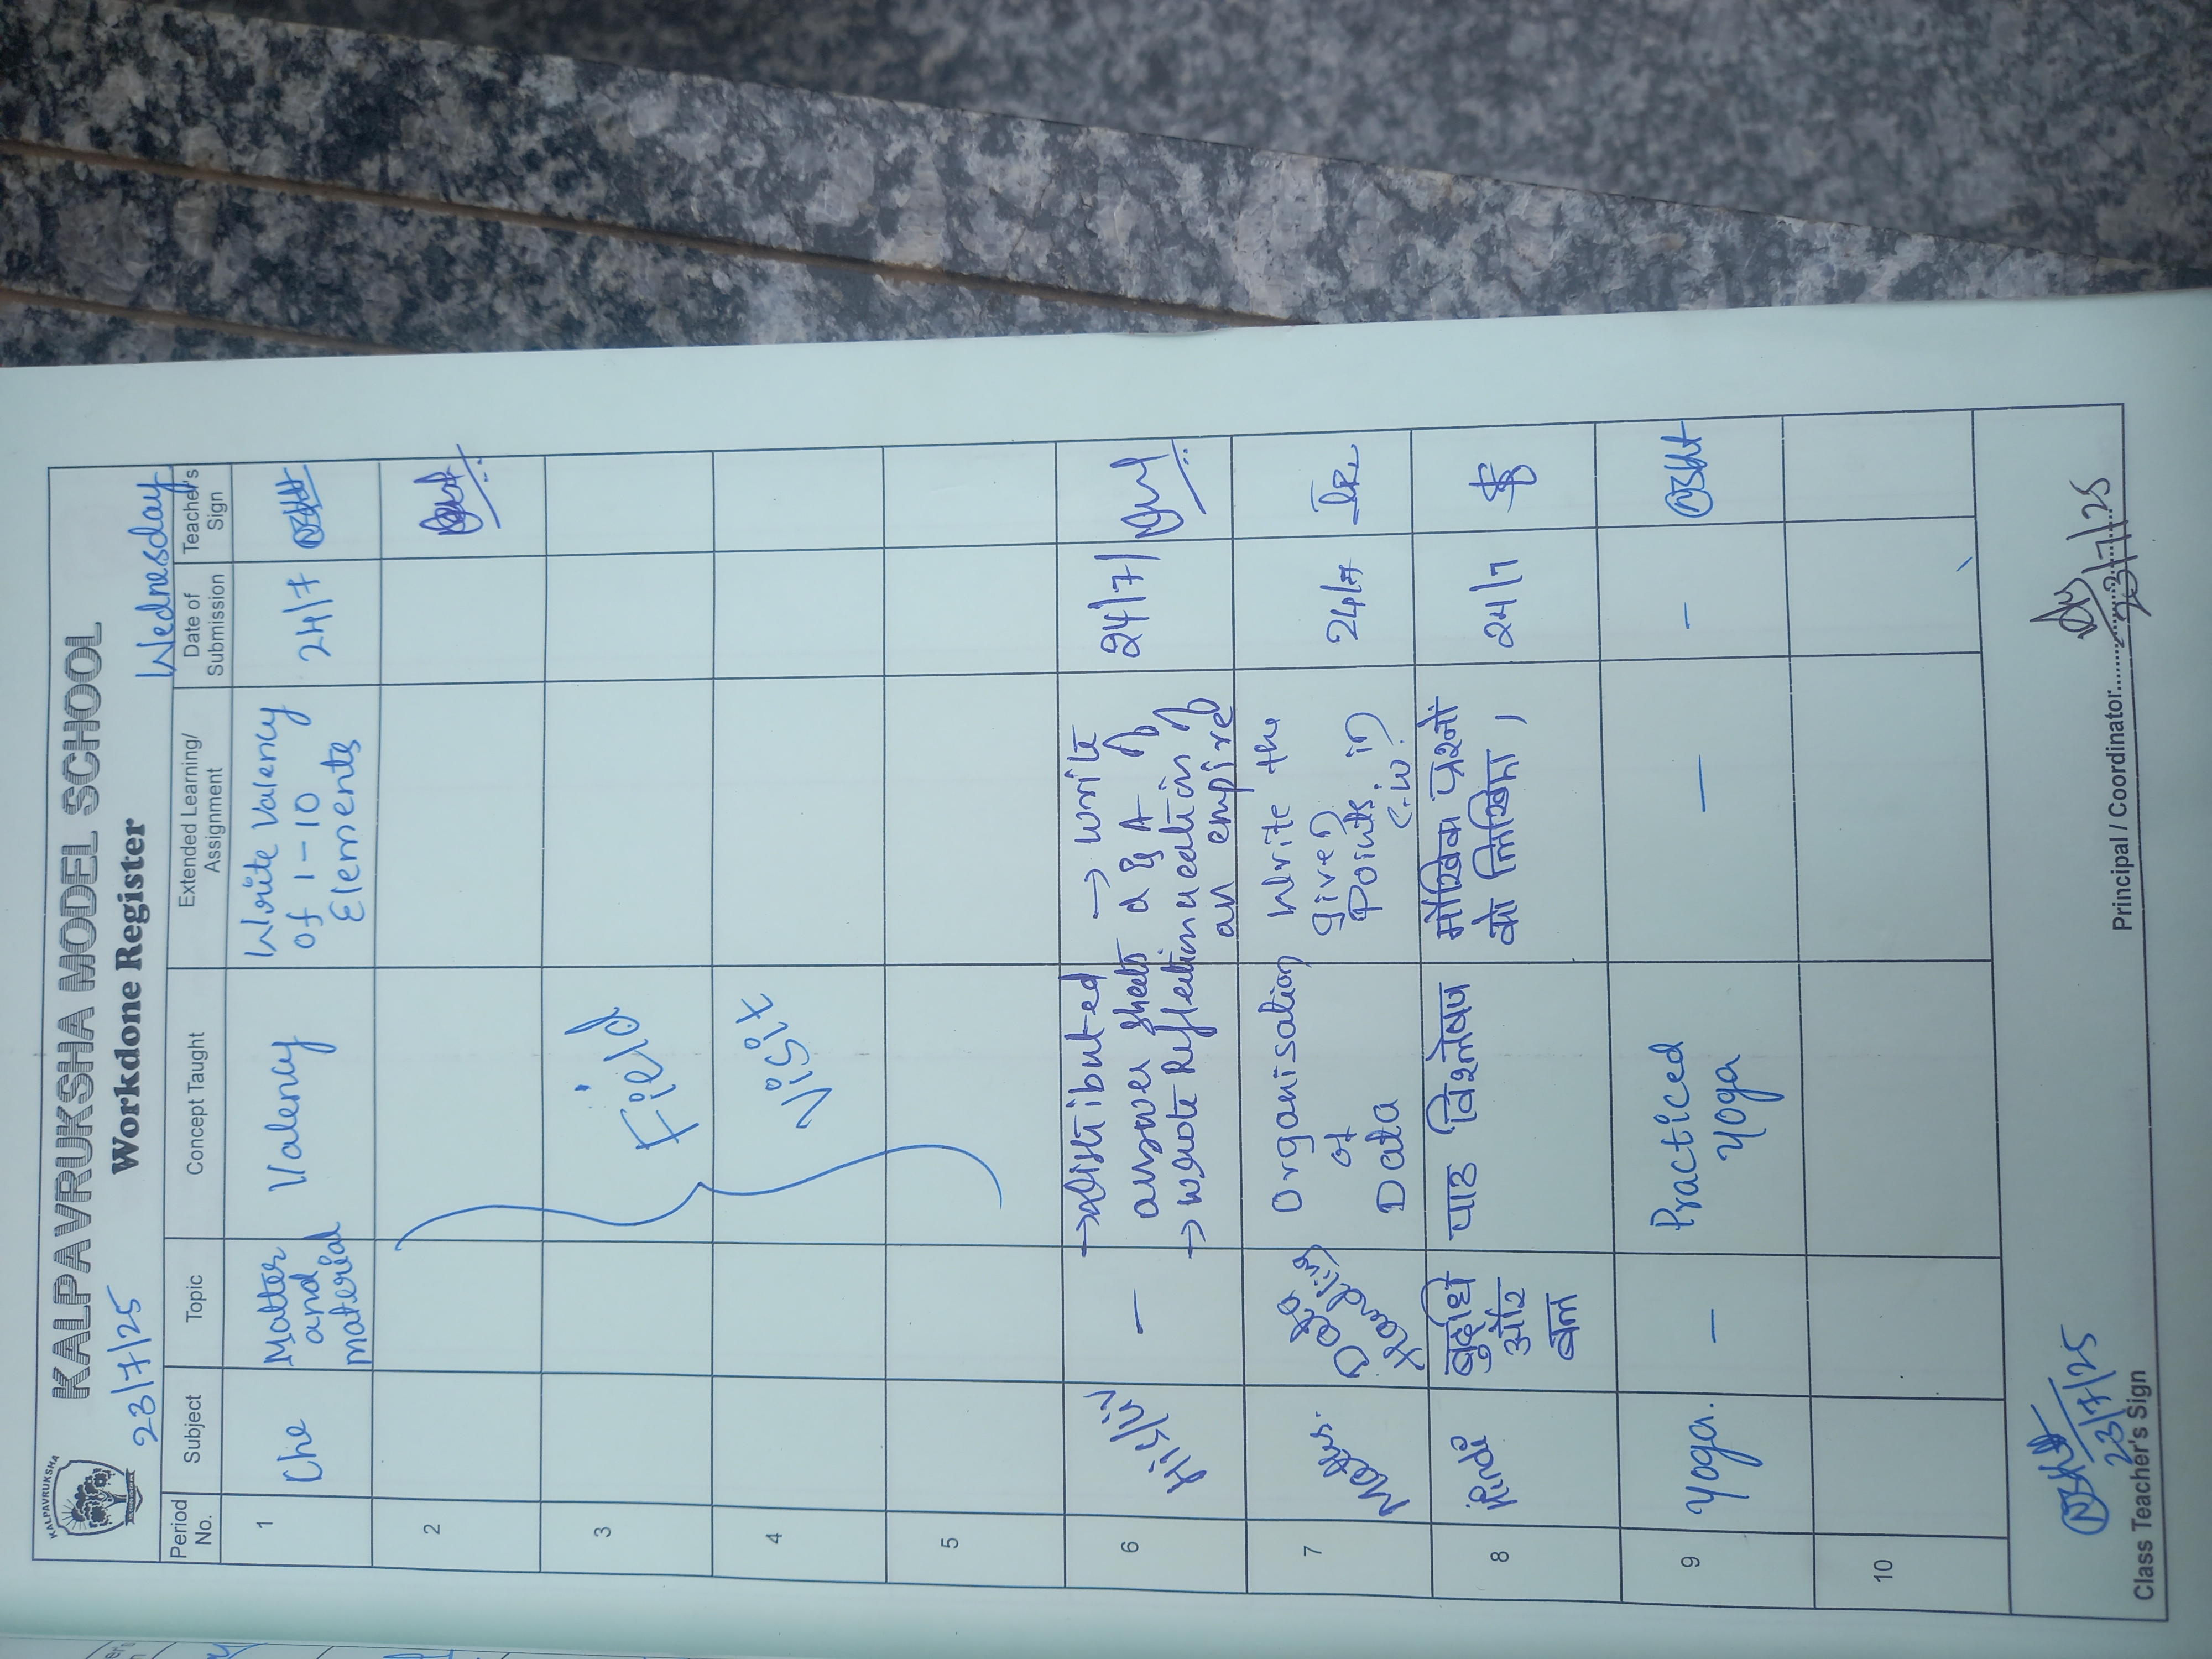 KALPAVRUKSHA
KALPAVRUKSHA MODEL SCHOOL
Workdone Register
23/7/25
Wednesday
Period No.
Subject
Topic
Concept Taught
Extended Learning/ Assignment
Date of Submission
Teacher's Sign
1
Che
Matter
and
material
Valency
Write Valency
of 1-10
Elements
24/7
2
3
Field
4
Visit
5
6
—
→ Distributed
answer sheets
→ wrote Reflection
→ write
Q & A of
an empire
24/7/
7
Data
Handling
Organisation
of
Data
Write the
given
Points in
C.W.
24/7
8
Hindi
बुद्धि
और
बल
पाठ विश्लेषण
मौखिक प्रश्नों
को लिखिए।
24/7
9
Yoga.
—
Practiced
Yoga
—
—
10
23/7/25
Class Teacher's Sign
Principal / Coordinator
23/7/25